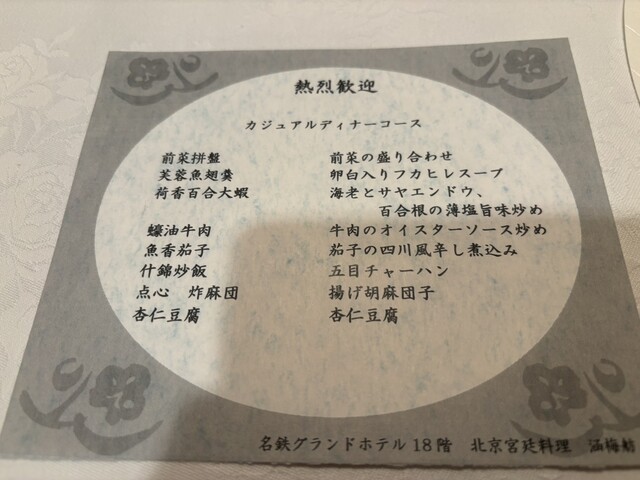 熱烈歓迎
カジュアルディナーコース
前菜拼盤 前菜の盛り合わせ
芙蓉魚翅羹 卵白入りフカヒレスープ
荷香百合大蝦 海老とサヤエンドウ、
百合根の薄塩旨味炒め
蠔油牛肉 牛肉のオイスターソース炒め
魚香茄子 茄子の四川風辛し煮込み
什錦炒飯 五目チャーハン
点心 炸麻団 揚げ胡麻団子
杏仁豆腐 杏仁豆腐
名鉄グランドホテル18階 北京宮廷料理 涵梅舫